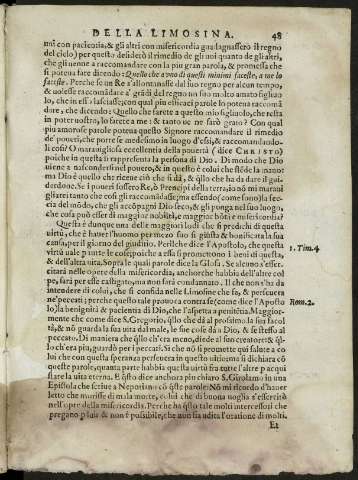 DELLA LIMOSINA. 48
mi con patientia, & gli altri con misericordia guadagnasserò il regno
del cielo) per questo desiderò il rimedio de gli vni quanto de gli altri,
che gli uenne a raccomandare con la piu gran parola, & promessa che
si poteua fare dicendo: Quello che a vno di questi minimi faceste, a me lo
faceste. Perche se un Re s'allontanasse dal suo regno per alcun tempo,
& uolesse raccomãdare a' grãdi del regno un suo molto amato figliuo
lo, che in essi lasciasse; con qual piu efficaci parole lo poteua raccomã
dare, che dicendo: Quello che farete a questo mio figliuolo, che resta
in poter uostro, lo farete a me: & tanto uo ne sarò grato? Con qual
piu amorose parole poteua questo Signore raccomandare il rimedio
de' poueri, che porre se medesimo in luogo d'essi, & raccomandando
li cosi? O marauigliosa eccellentia della pouertà (dice CHRISTO)
poiche in questa si rappresenta la persona di Dio. Di modo che Dio
uiene a nascondersi nel pouero, & in questo è colui che stẽde la mano:
ma Dio è quello che riceue ciò che si dà, & q̃llo che ha da dare il gui-
derdone. Se i poueri fossero Re, ò Prencipi della terra, io nõ mi marauì
gliarei tanto che cosi gli raccomãdasse; ma essendo (come sono) la fec-
cia del mõdo, che gli accõpagni Dio seco, & gli ponga nel suo luogo,
che cosa può esser di maggior nobiltà, e maggior bõtà e misericordia?
Questa è dunque una delle maggiori lodi che si predichi di questa
uirtù, che è hauer l'huomo per mezo suo sì giusta & honificata la sua
causa, per il giorno del giuditio. Perilche dice l'Apostolo, che questa
virtù uale p tutte le cose, poiche a essa si promettono i beni di questa,
& dell'altra uita. Sopra le quali parole dice la Glosa. Se alcuno s'esser-
citarà nelle opere della misericordia, anchorche habbia dell'altre col
pe, sarà per esse castigato, ma non sarà condannato. Il che non s'ha da
intendere di colui, che si confida nelle Limosine che fa, & perseuera
ne' peccati: perche questo tale prouoca contra se (come dice l'Aposto
lo) la benignità & patientia di Dio, che l'aspetta a penitẽtia. Maggior-
mente che come dice S. Gregorio, q̃llo che dà al prossimo la sua facol
tà, & nõ guarda la sua uita dal male, le sue cose dà a Dio, & se stesso al
peccato. Di maniera che q̃llo ch'era meno, diede al suo creatore: & q̃l-
lo ch'era piu, guardò per i peccati. Si che nõ si promette quì salute a co
lui che con questa speranza perseuera in questo uitio: ma si dichiara cõ
queste parole, quanta parte habbia questa uirtù fra tutte l'altre p acqui
stare la uita eterna. E q̃sto dice anchora piu chiaro S. Girolamo in una
Epistola che scriue a Nepotiano cõ q̃ste parole: Nõ mi ricordo d'hauer
letto che morisse di mala morte, colui che di buona uoglia s'essercitò
nell'opre della misericordia. Perche ha q̃sto tale molti intercessori che
pregano p lui: & non è possibile, che non sia udita l'oratione di molti.
Et
1. Tim. 4
Rom. 2.